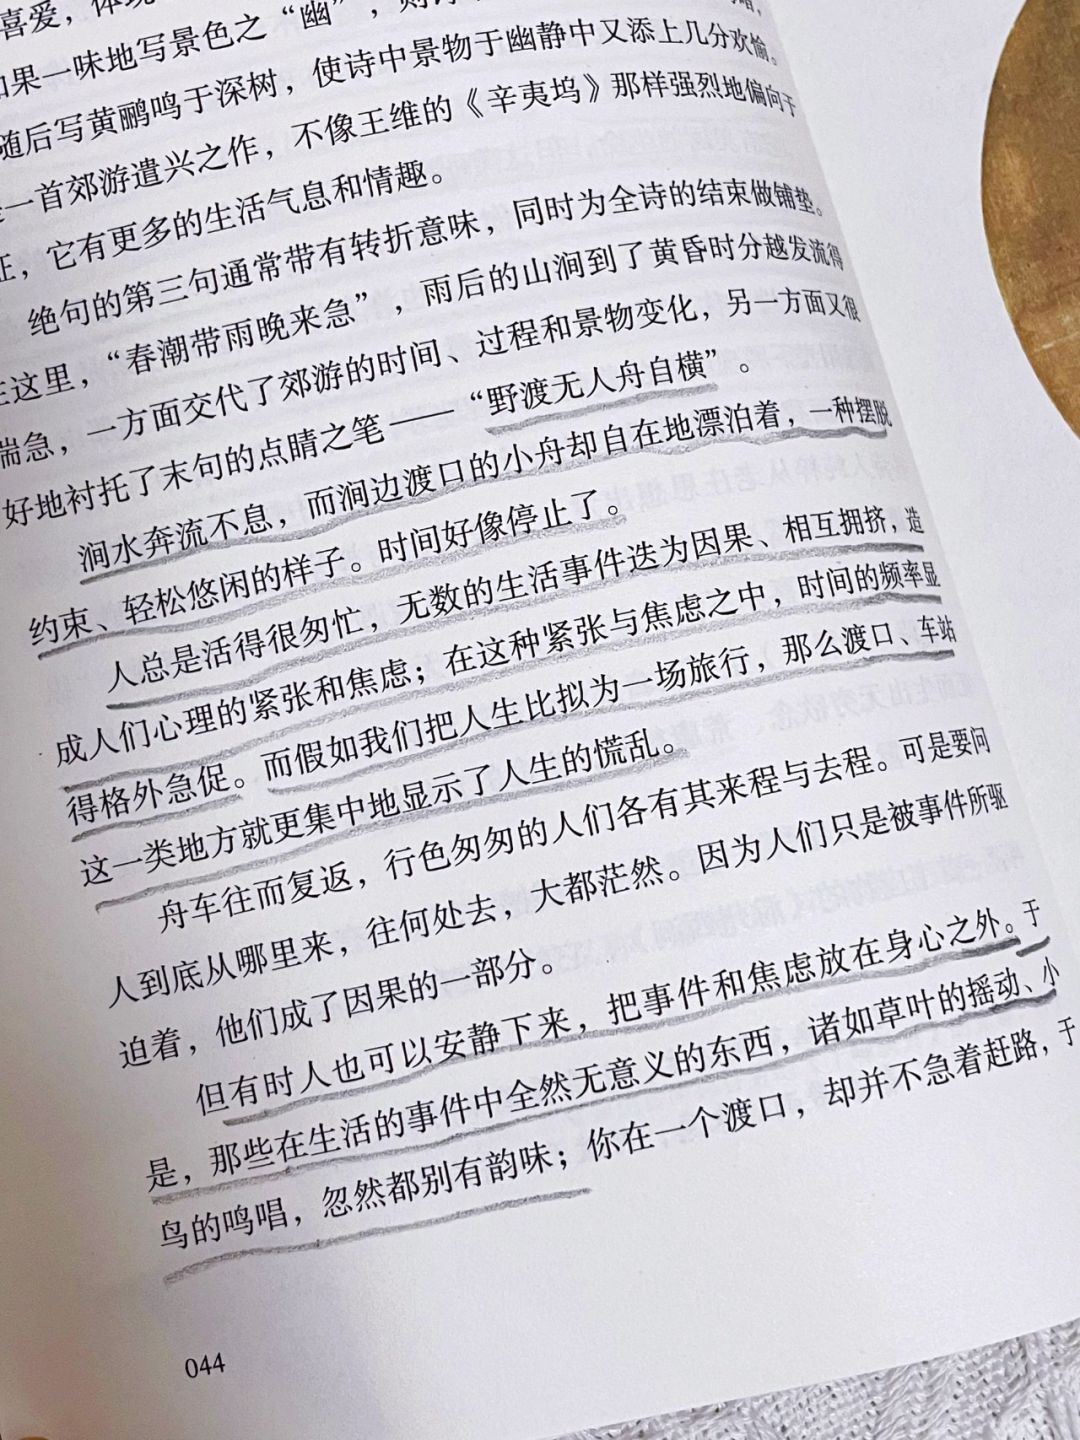 喜爱，体现
如果一味地写景色之“幽”，则
随后写黄鹂鸣于深树，使诗中景物于幽静中又添上几分欢愉。
是一首郊游遣兴之作，不像王维的《辛夷坞》那样强烈地偏向于
证，它有更多的生活气息和情趣。
绝句的第三句通常带有转折意味，同时为全诗的结束做铺垫。
在这里，“春潮带雨晚来急”，雨后的山涧到了黄昏时分越发流得
湍急，一方面交代了郊游的时间、过程和景物变化，另一方面又很
好地衬托了末句的点睛之笔——“野渡无人舟自横”。
涧水奔流不息，而涧边渡口的小舟却自在地漂泊着，一种摆脱
约束、轻松悠闲的样子。时间好像停止了。
人总是活得很匆忙，无数的生活事件迭为因果、相互拥挤，造
成人们心理的紧张和焦虑；在这种紧张与焦虑之中，时间的频率显
得格外急促。而假如我们把人生比拟为一场旅行，那么渡口、车站
这一类地方就更集中地显示了人生的慌乱。
舟车往而复返，行色匆匆的人们各有其来程与去程。可是要问
人到底从哪里来，往何处去，大都茫然。因为人们只是被事件所驱
迫着，他们成了因果的一部分。
但有时人也可以安静下来，把事件和焦虑放在身心之外。于
是，那些在生活的事件中全然无意义的东西，诸如草叶的摇动、小
鸟的鸣唱，忽然都别有韵味；你在一个渡口，却并不急着赶路，于
044